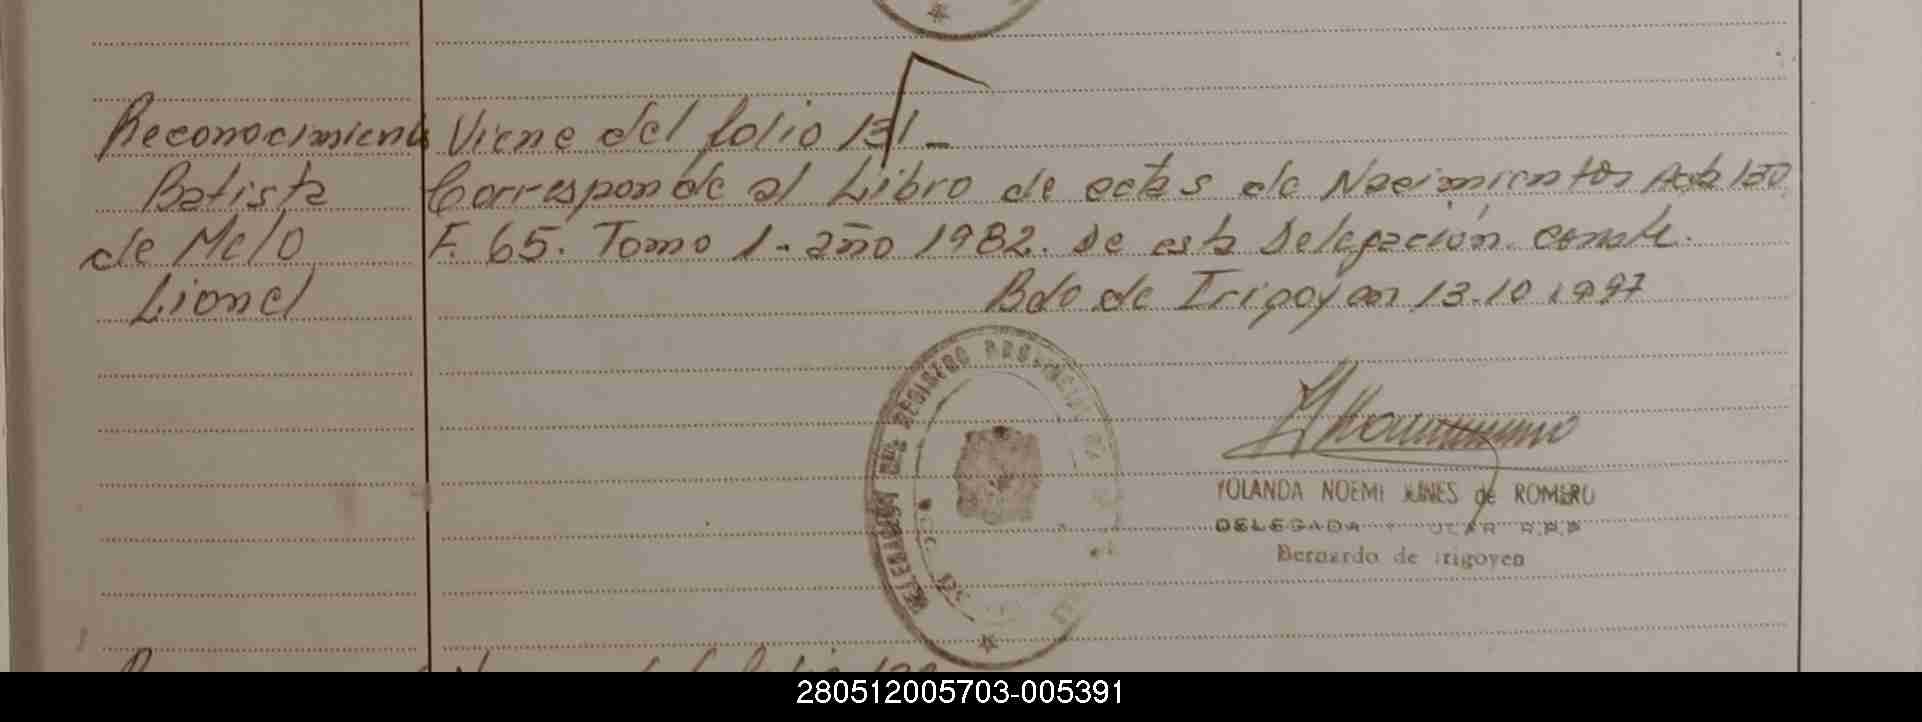 Reconocimiento
Batista
de Melo
Lionel
Viene del folio 131 -
Corresponde al Libro de actas de Nacimientos Acta 130
F. 65. Tomo 1 - año 1982. de esta Delegación. conste.
Bdo de Irigoyen 13.10.1997
DELEGACION DEL REGISTRO PROVINCIAL DE
YOLANDA NOEMI de ROMERO
DELEGADA R.P.P
Bernardo de Irigoyen
280512005703-005391